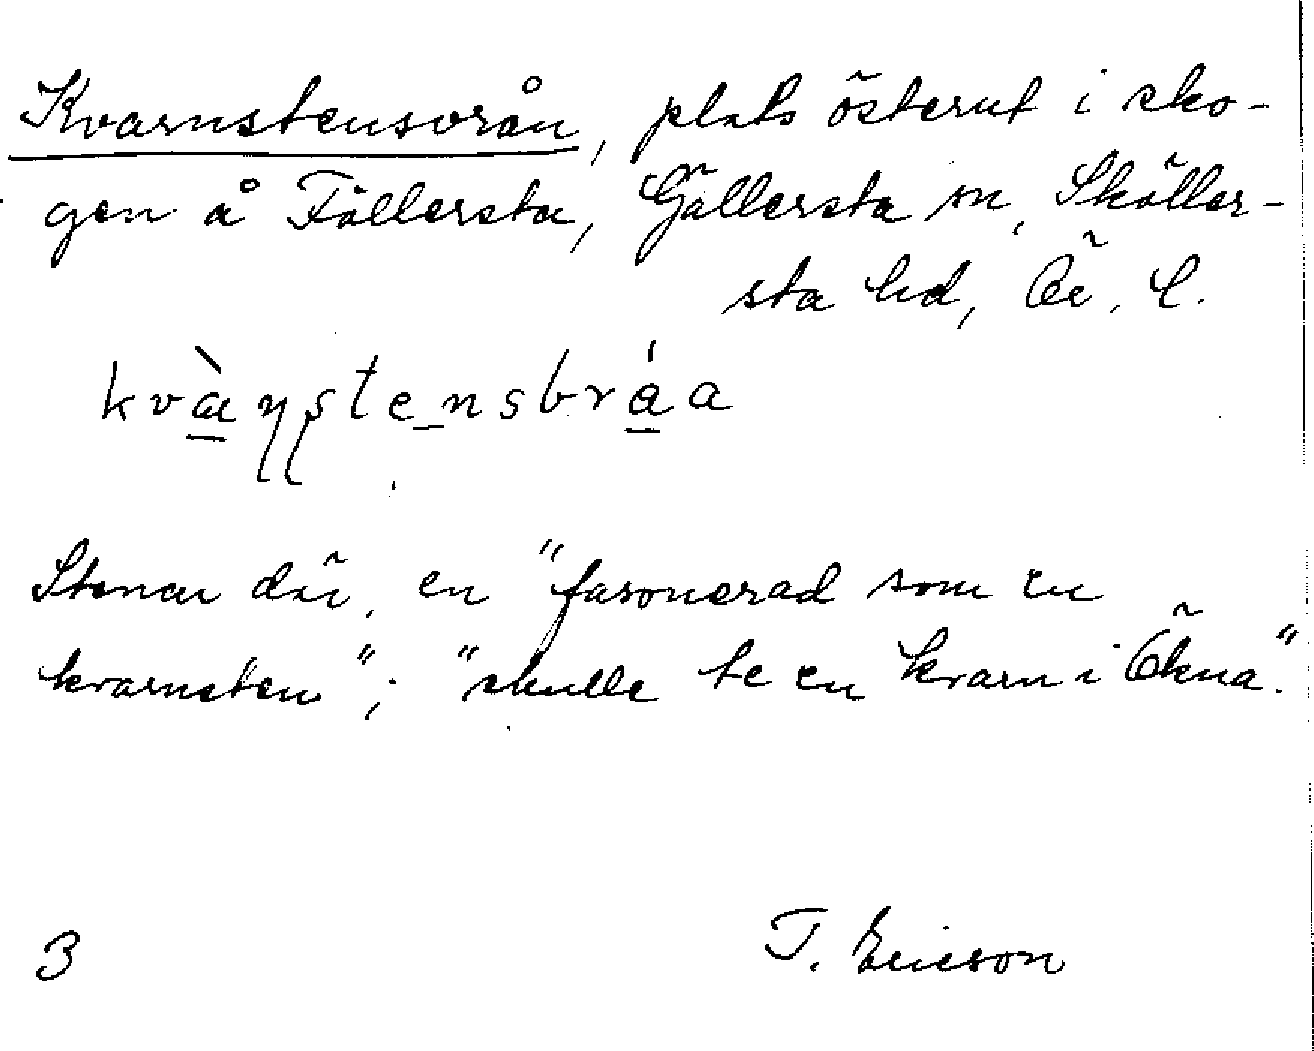 Kvarnstensvrån, plats österut i sko-
gen å Fällersta, Gällersta sn, Sköller-
sta hd, Öe. L.
Stenar där, en "fasonerad som en
kvarnsten"; "skulle te en kvarn i Ökna."
3 T. Ericson